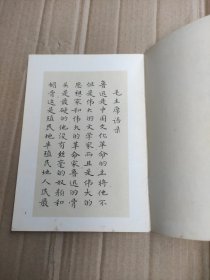 毛主席语录
鲁迅是中国文化革命的主将他不
但是伟大的文学家而且是伟大的
思想家和伟大的革命家鲁迅的骨
头是最硬的他没有丝毫的奴颜和
媚骨这是殖民地半殖民地人民最